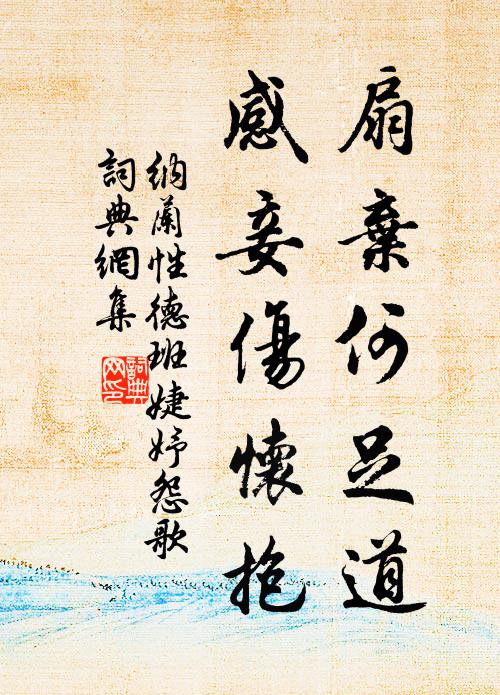 扇棄何足道
感妾傷懷抱
納蘭性德班婕妤怨歌
詞典網集
詞典
网印